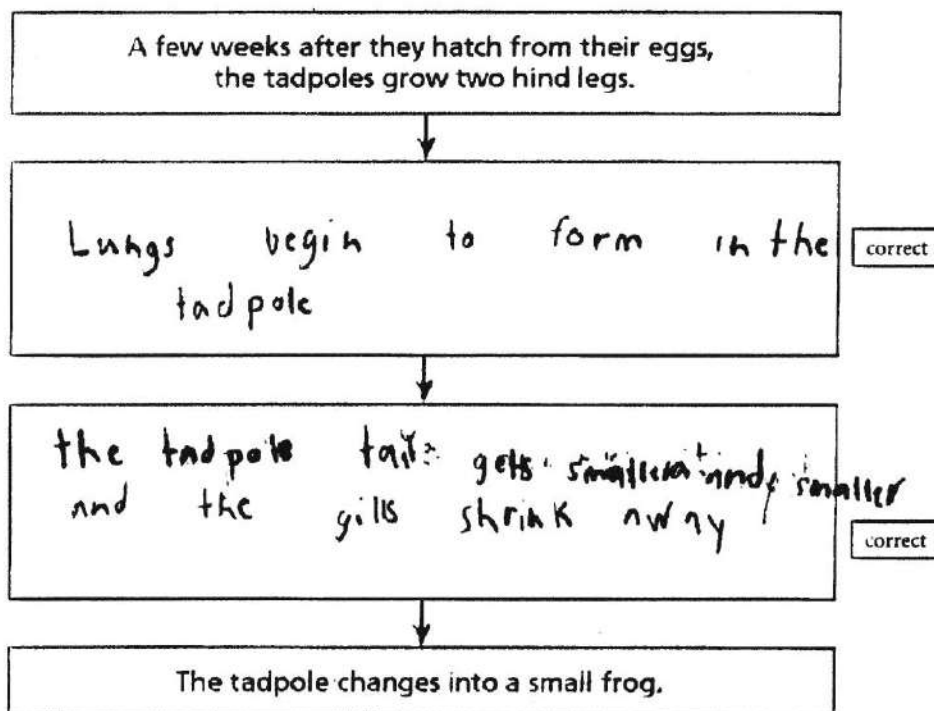 A few weeks after they hatch from their eggs,
the tadpoles grow two hind legs.
Lungs begin to form in the
tadpole
correct
the tadpole tail gets smaller and smaller
and the gills shrink away
correct
The tadpole changes into a small frog.